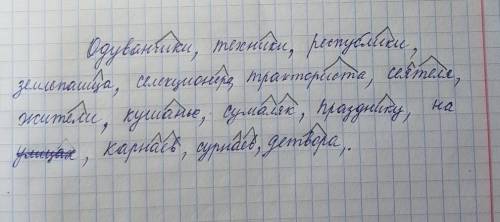 Одуванчики, техники, республики,
землепашца, селекционера, тракториста, сеятеле,
жители, кушанью, сумаляк, празднику, на
улицах, карнаев, сурнаев, детвора,.